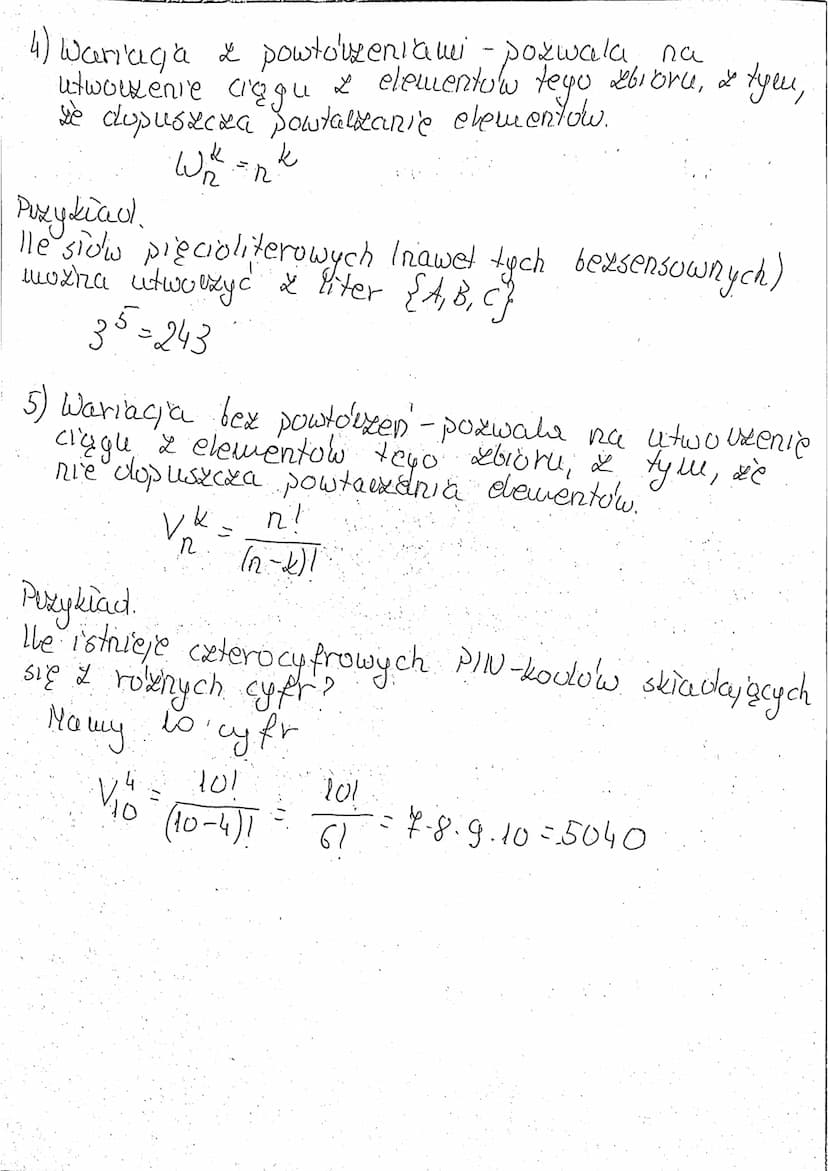 4) Wariacja z powtórzeniami - pozwala na
utworzenie ciągu z elementów tego zbioru, z tym,
że dopuszcza powtarzanie elementów.
W_n^k = n^k
Przykład.
Ile słów pięcioliterowych (nawet tych bezsensownych)
można utworzyć z liter {A, B, C}
3^5 = 243
5) Wariacja bez powtórzeń - pozwala na utworzenie
ciągu z elementów tego zbioru, z tym, że
nie dopuszcza powtarzania elementów.
V_n^k = n! / (n-k)!
Przykład.
Ile istnieje czterocyfrowych PIN-kodów składających
się z różnych cyfr?
Mamy 10 cyfr
V_10^4 = 10! / (10-4)! = 10! / 6! = 7·8·9·10 = 5040